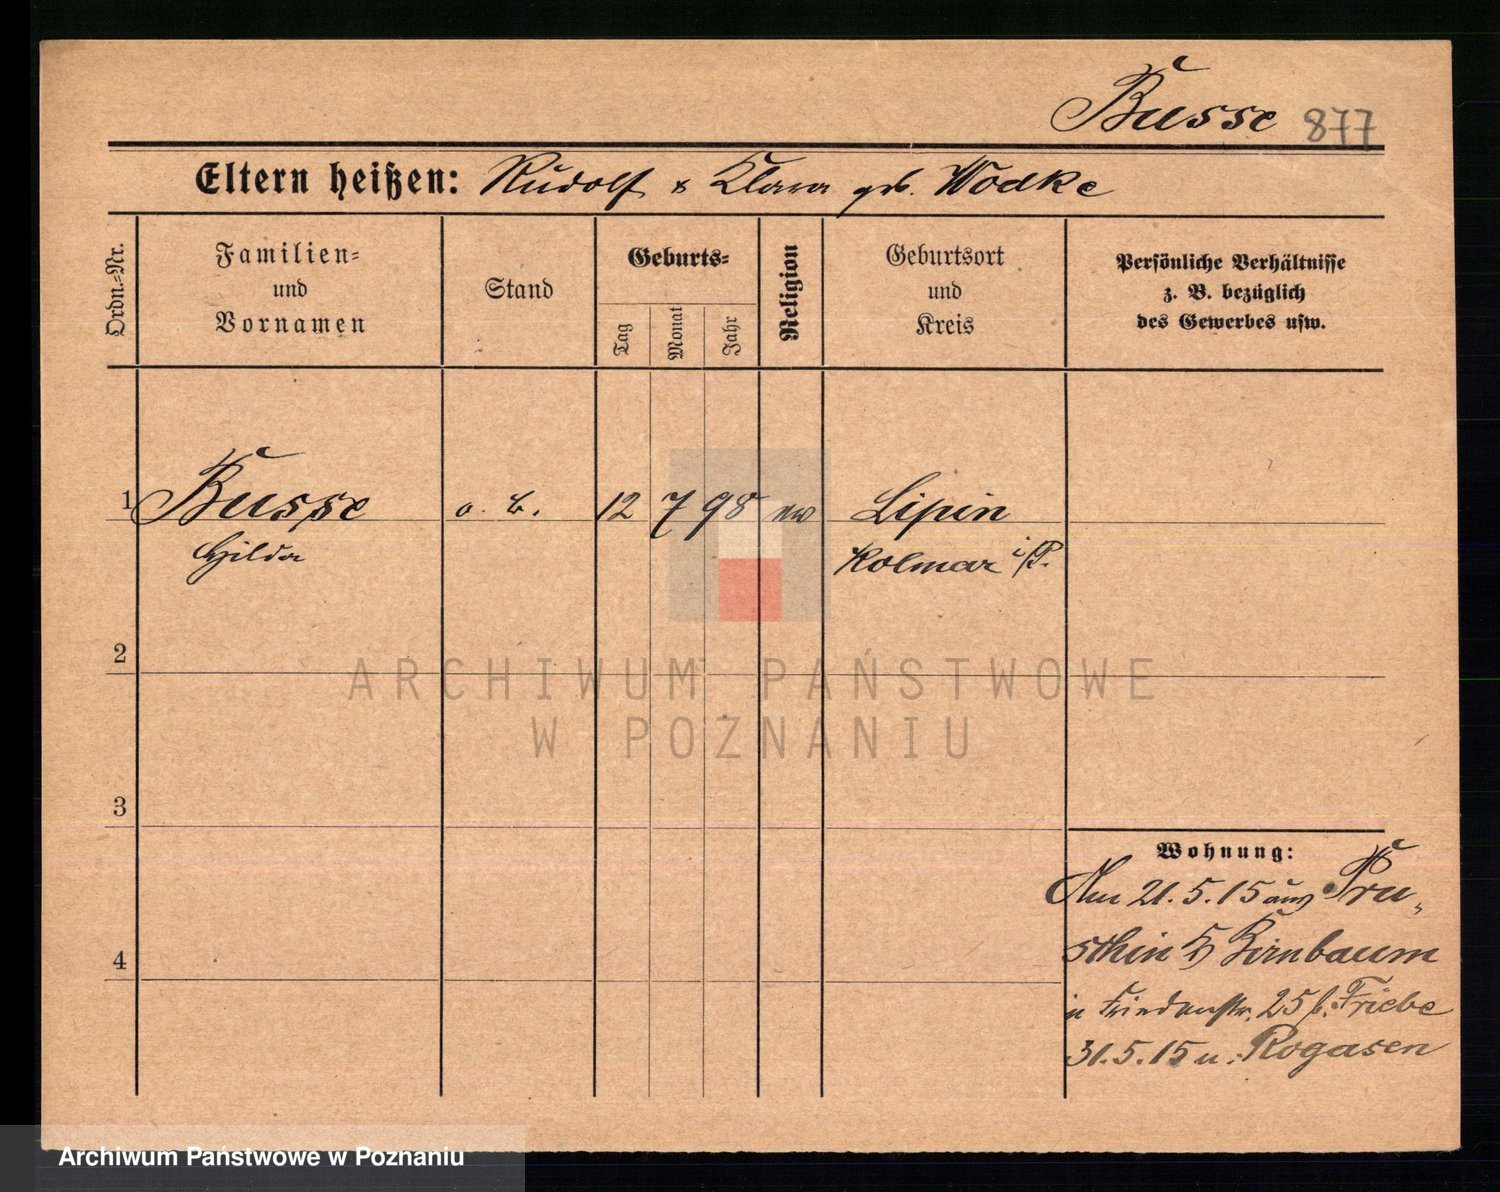 Busse 877
Eltern heißen: Rudolf & Klara geb. Wodke
Ordn.=Nr.
Familien=
und
Vornamen
Stand
Geburts=
Tag
Monat
Jahr
Religion
Geburtsort
und
Kreis
Persönliche Verhältnisse
z. B. bezüglich
des Gewerbes usw.
1 Busse o. B. 12 7 98 ev Lipin
Hilda Kolmar i/P.
2
3
4
Wohnung:
Am 21.5.15 aus Pru„
sthin Kr Birnbaum
n Friedenstr. 25 b. Friebe
31.5.15 n. Rogasen
ARCHIWUM PAŃSTWOWE
W POZNANIU
Archiwum Państwowe w Poznaniu